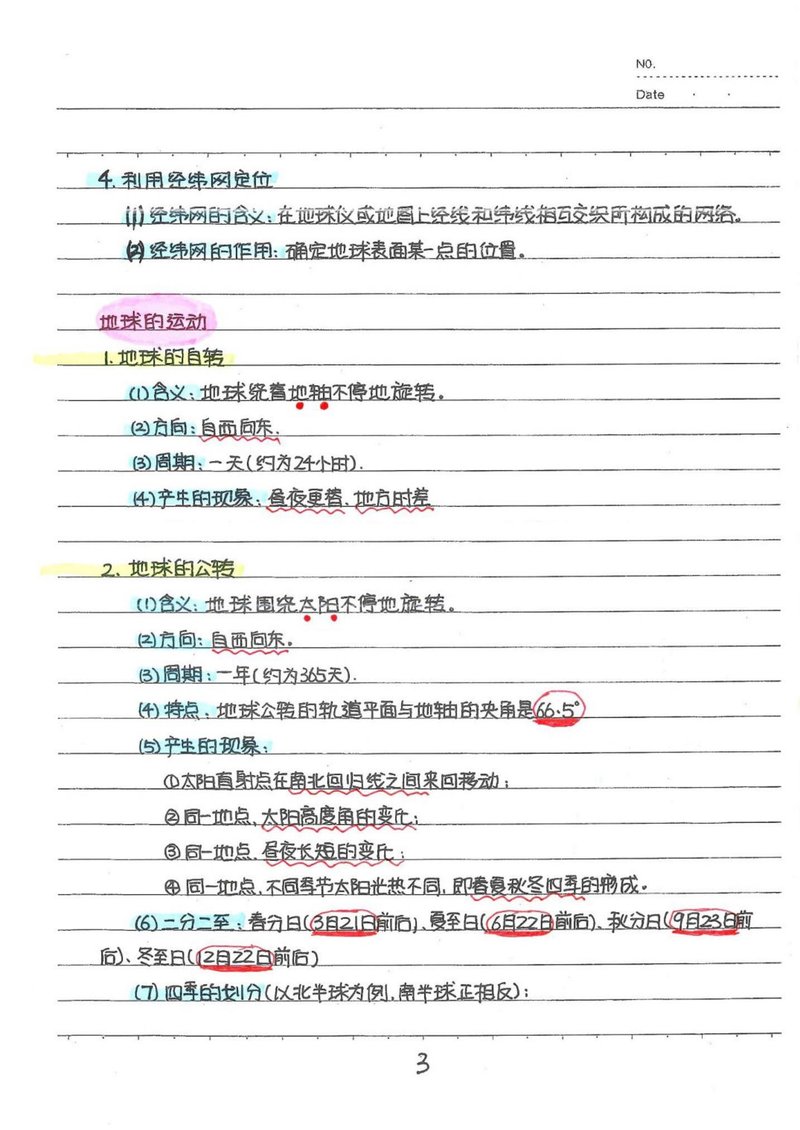 NO.
Date · ·
4. 利用经纬网定位
(1) 经纬网的含义: 在地球仪或地图上经线和纬线相互交织所构成的网络。
(2) 经纬网的作用: 确定地球表面某一点的位置。
地球的运动
1. 地球的自转
(1) 含义: 地球绕着地轴不停地旋转。
(2) 方向: 自西向东.
(3) 周期: 一天(约为24小时).
(4) 产生的现象: 昼夜更替、地方时差
2. 地球的公转
(1) 含义: 地球围绕太阳不停地旋转。
(2) 方向: 自西向东。
(3) 周期: 一年(约为365天).
(4) 特点: 地球公转的轨道平面与地轴的夹角是66.5°
(5) 产生的现象:
①太阳直射点在南北回归线之间来回移动;
②同一地点、太阳高度角的变化;
③同一地点、昼夜长短的变化;
④同一地点、不同季节太阳光热不同, 即春夏秋冬四季的形成。
(6) 二分二至: 春分日(3月21日前后)、夏至日(6月22日前后)、秋分日(9月23日前
后)、冬至日(12月22日前后)
(7) 四季的划分(以北半球为例, 南半球正相反):
3